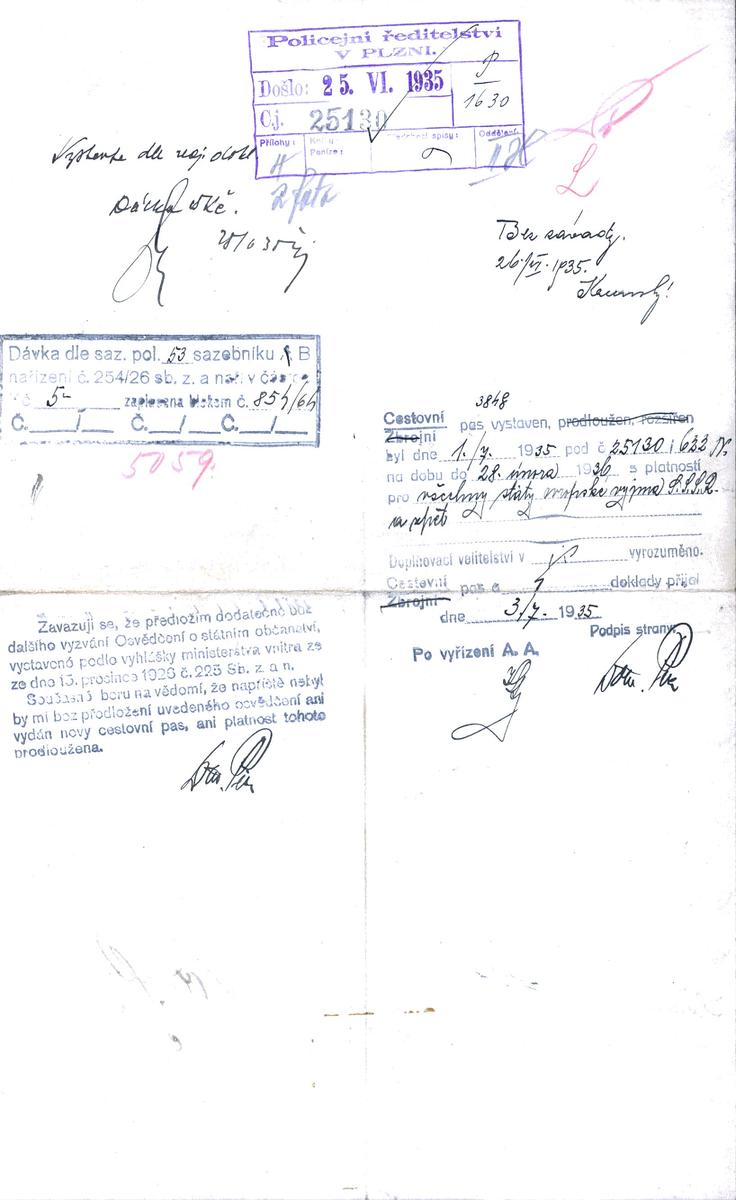 Policejní ředitelství
V PLZNI.
Došlo: 25. VI. 1935
Čj. 25130
P
1630
Přílohy:
4
2 fota
Oddělení
dle
Kč.
Bez závady.
26./VI. 1935.
Dávka dle saz. pol. 53 sazebníku A B
nařízení č. 254/26 sb. z. a nař. v částce
Kč 5- zaplacena blokem č. 854/64
Č. / / Č. / Č. / /
5059.
3848
Cestovní pas vystaven, prodloužen, rozšířen
Zbrojní
byl dne 1./7. 1935 pod č 25130 i 622
na dobu do 28. února 1936 s platností
pro všechny státy evropské vyjma S.S.S.R.
a zpět
Doplňovací velitelství v vyrozuměno.
Cestovní pas a doklady přijal
Zbrojní
dne 3/7. 1935
Podpis strany:
Po vyřízení A. A.
Zavazuji se, že předložím dodatečně bez
dalšího vyzvání Osvědčení o státním občanství,
vystavené podle vyhlášky ministerstva vnitra ze
ze dne 15. prosince 1926 č. 225 Sb. z. a n.
Současně beru na vědomí, že napříště nebyl
by mi bez předložení uvedeného osvědčení ani
vydán nový cestovní pas, ani platnost tohoto
prodloužena.